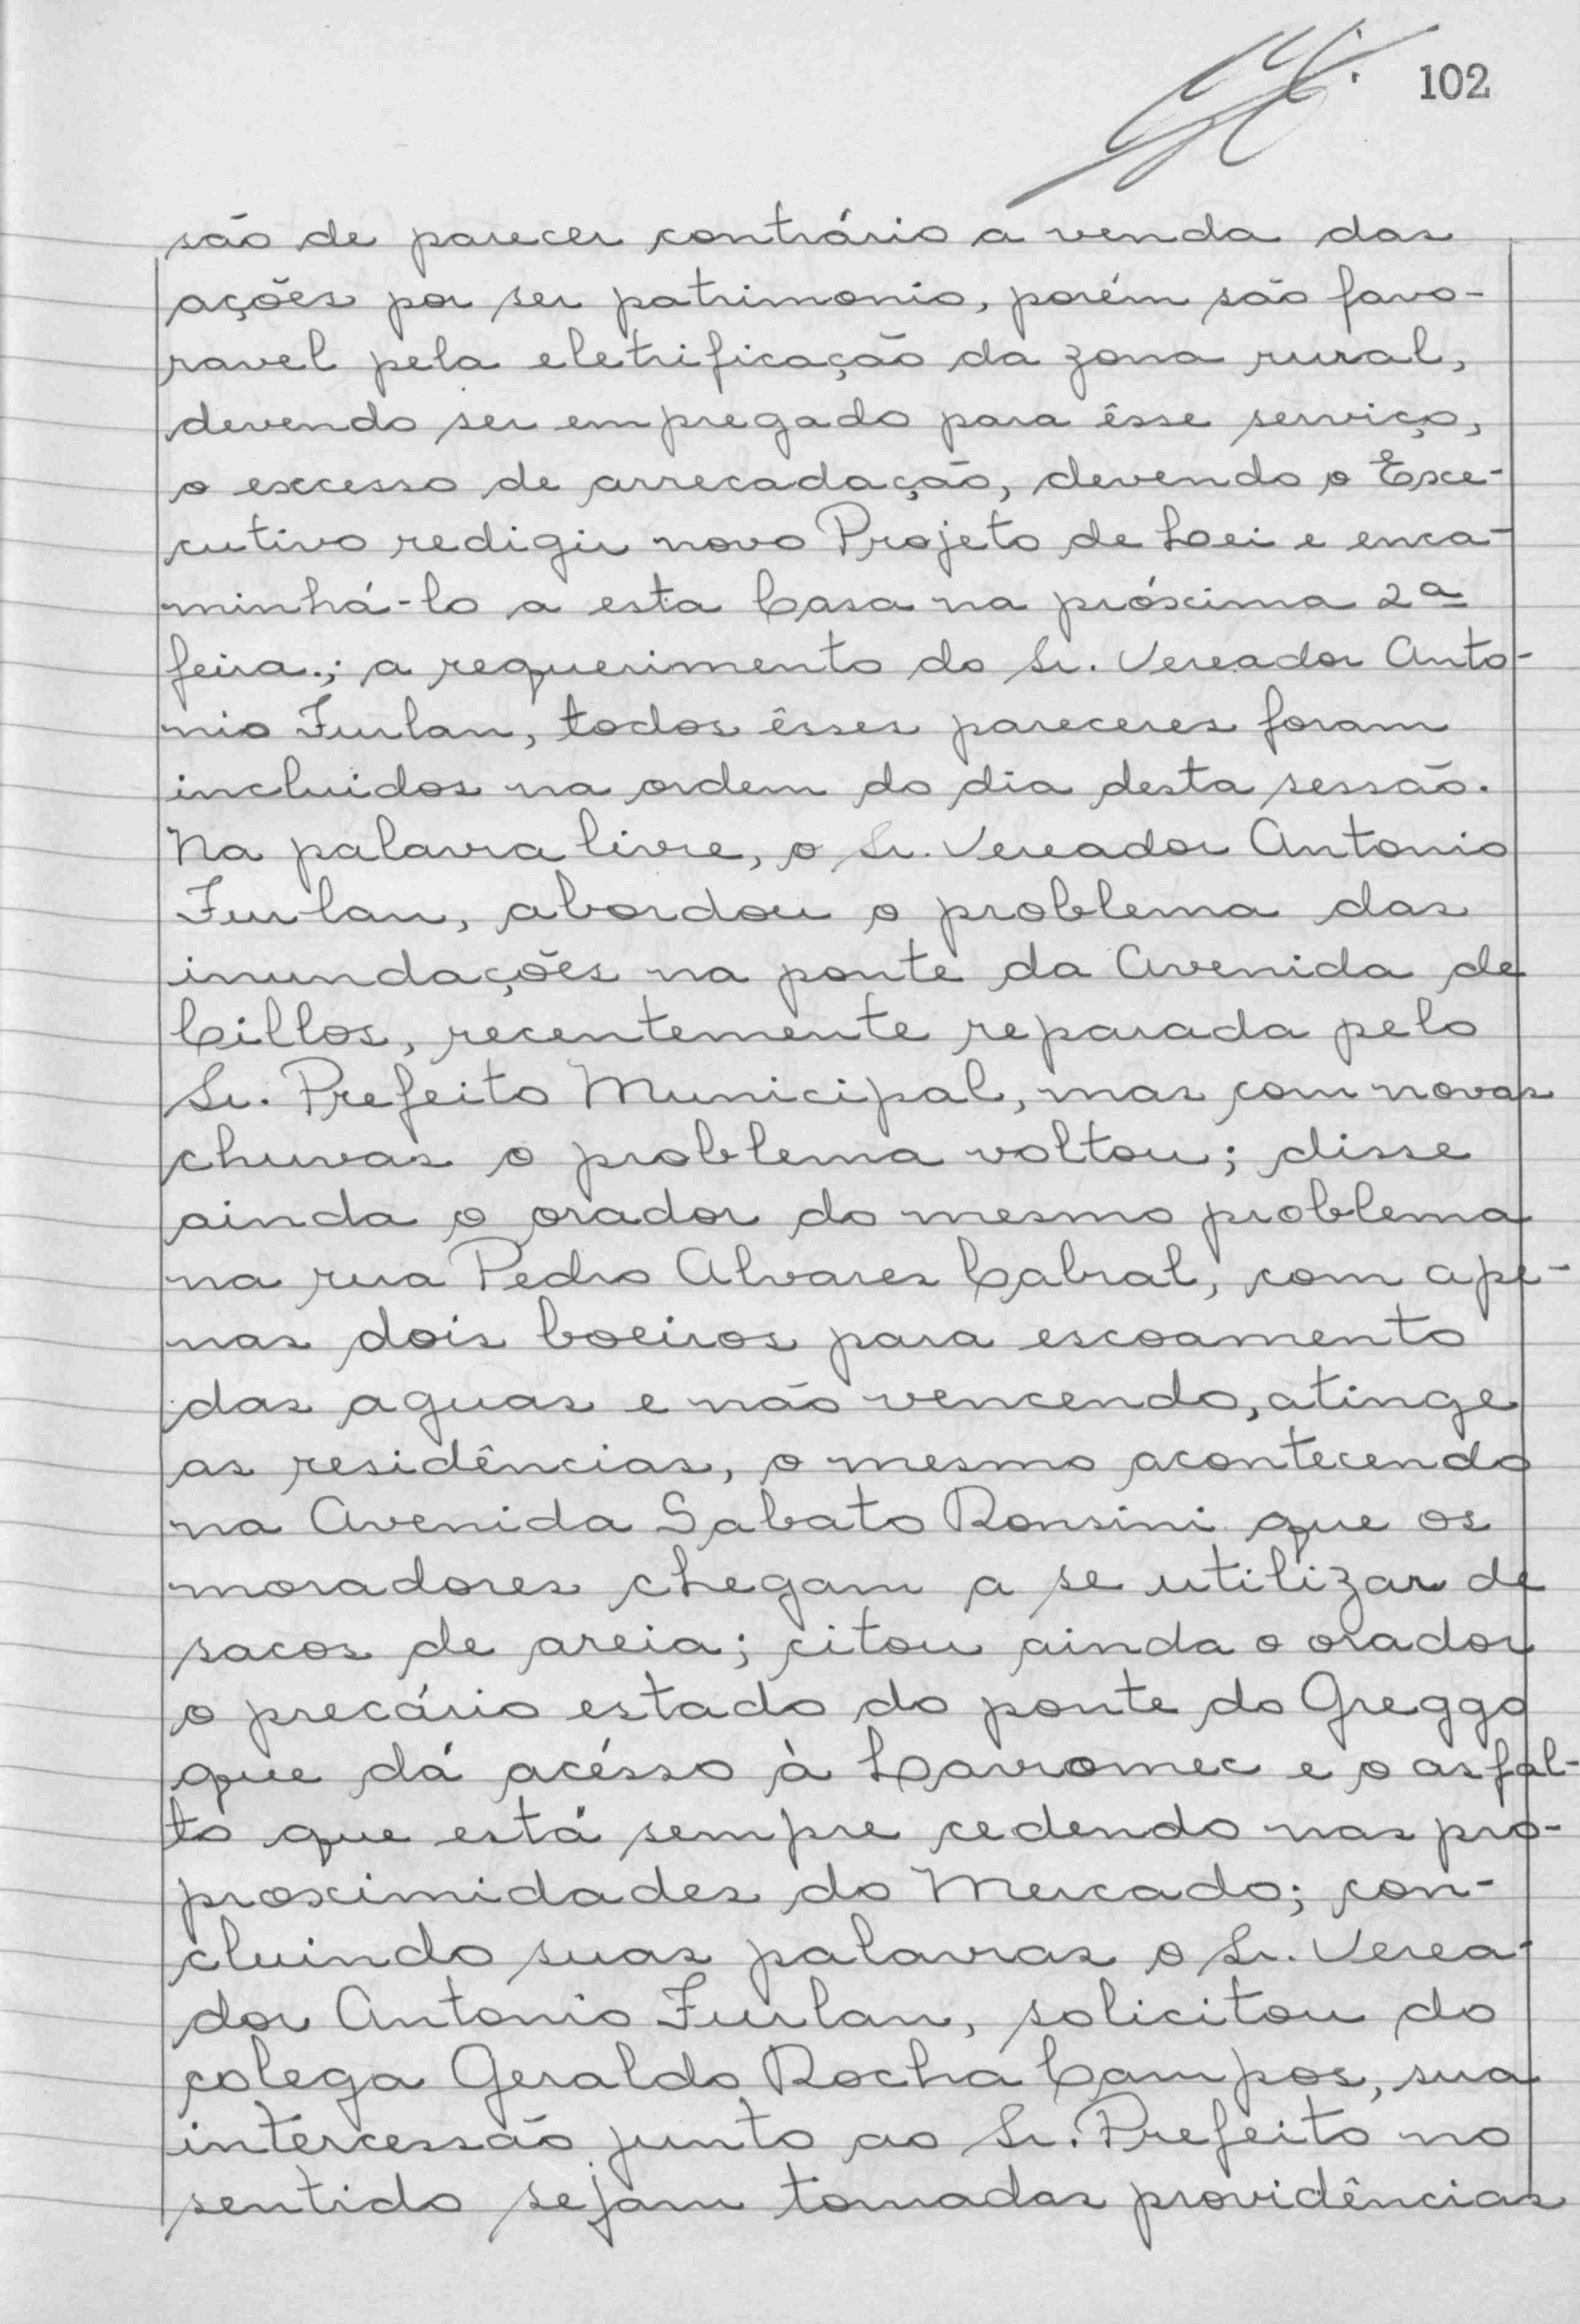 102
são de parecer contrário a venda das
ações por ser patrimonio, porém são favo-
ravel pela eletrificação da zona rural,
devendo ser empregado para êsse serviço,
o excesso de arrecadação, devendo o Exe-
cutivo redigir novo Projeto de Lei e enca-
minhá-lo a esta Casa na próxima 2ª
feira.; a requerimento do Sr. Vereador Anto-
nio Furlan, todos êsses pareceres foram
incluidos na ordem do dia desta sessão.
Na palavra livre, o Sr. Vereador Antonio
Furlan, abordou o problema das
inundações na ponte da Avenida de
Cillos, recentemente reparada pelo
Sr. Prefeito Municipal, mas com novas
chuvas o problema voltou; disse
ainda o orador do mesmo problema
na rua Pedro Alvares Cabral, com ape-
nas dois boeiros para escoamento
das aguas e não vencendo, atinge
as residências, o mesmo acontecendo
na Avenida Sabato Ronsini que os
moradores chegam a se utilizar de
sacos de areia; citou ainda o orador
o precário estado do ponte do Greggo
que dá acésso à Lavromec e o asfal-
to que está sempre cedendo nas pro-
proximidades do Mercado; con-
cluindo suas palavras o Sr. Verea-
dor Antonio Furlan, solicitou do
colega Geraldo Rocha Campos, sua
intercessão junto ao Sr. Prefeito no
sentido sejam tomadas providências